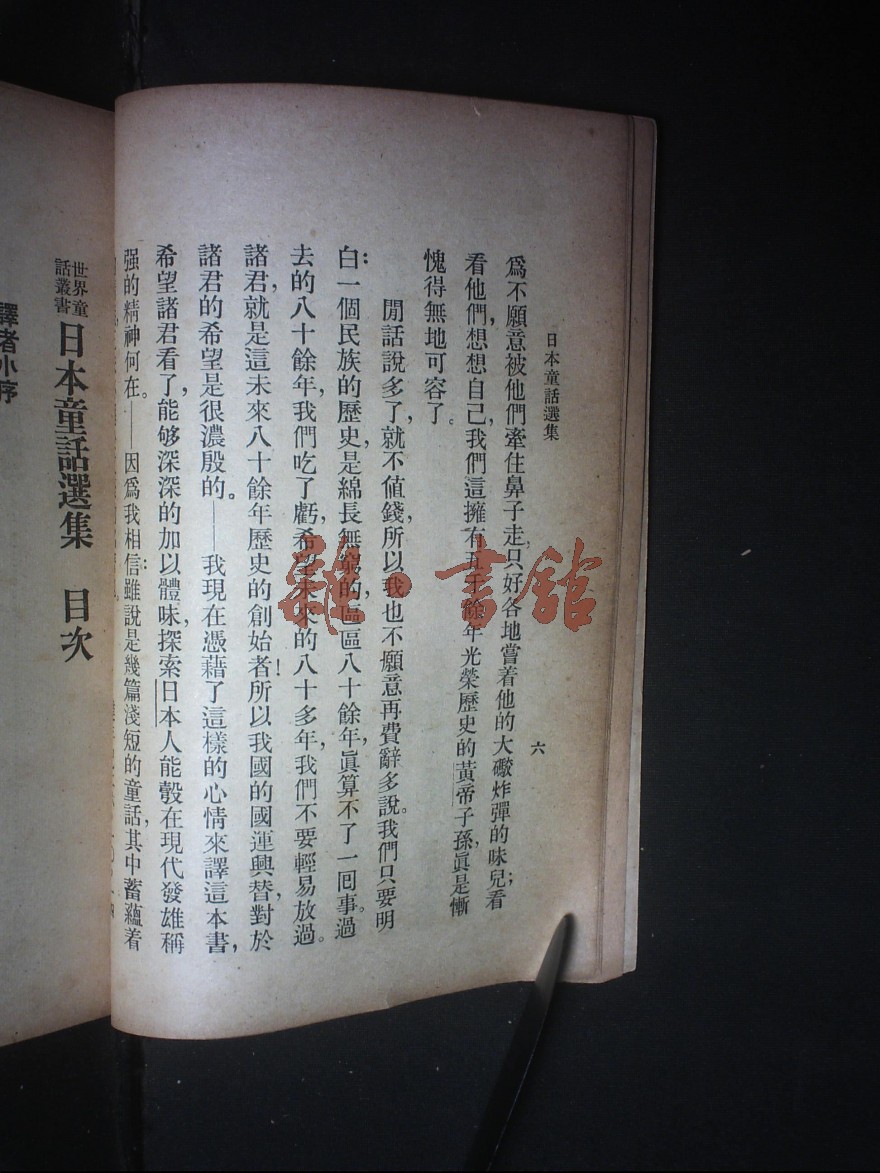 日本童話選集
六
爲不願意被他們牽住鼻子走,只好各地嘗着他的大礮炸彈的味兒;看
看他們,想想自己,我們這擁有五千餘年光榮歷史的黃帝子孫,眞是慚
愧得無地可容了。
閒話說多了,就不值錢,所以我也不願意再費辭多說。我們只要明
白:一個民族的歷史,是綿長無窮的,區區八十餘年,眞算不了一囘事。過
去的八十餘年,我們吃了虧,希望未來的八十多年,我們不要輕易放過。
諸君,就是這未來八十餘年歷史的創始者!所以我國的國運興替,對於
諸君的希望是很濃殷的。——我現在憑藉了這樣的心情來譯這本書,
希望諸君看了,能够深深的加以體味,探索日本人能彀在現代發雄稱
强的精神何在。——因爲我相信:雖說是幾篇淺短的童話,其中蓄蘊着
世界童
話叢書
日本童話選集 目次
譯者小序
雜·書館